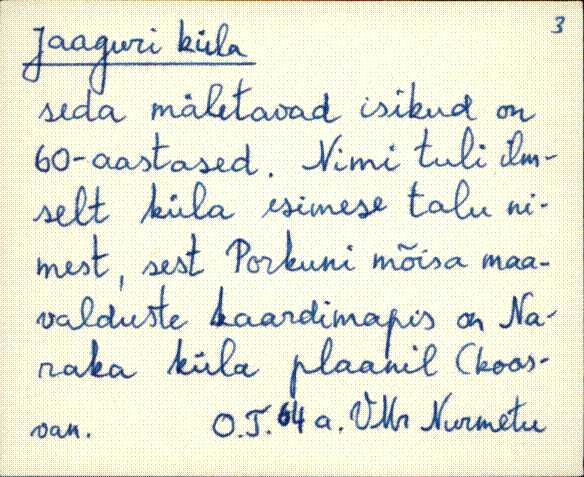 3
Jaaguri küla
seda mäletavad isikud on
60-aastased. Nimi tuli ilm-
selt küla esimese talu ni-
mest, sest Porkuni mõisa maa-
valduste kaardimapis on Na-
raka küla plaanil (koos-
van. O.T. 64 a. VMr Nurmetu